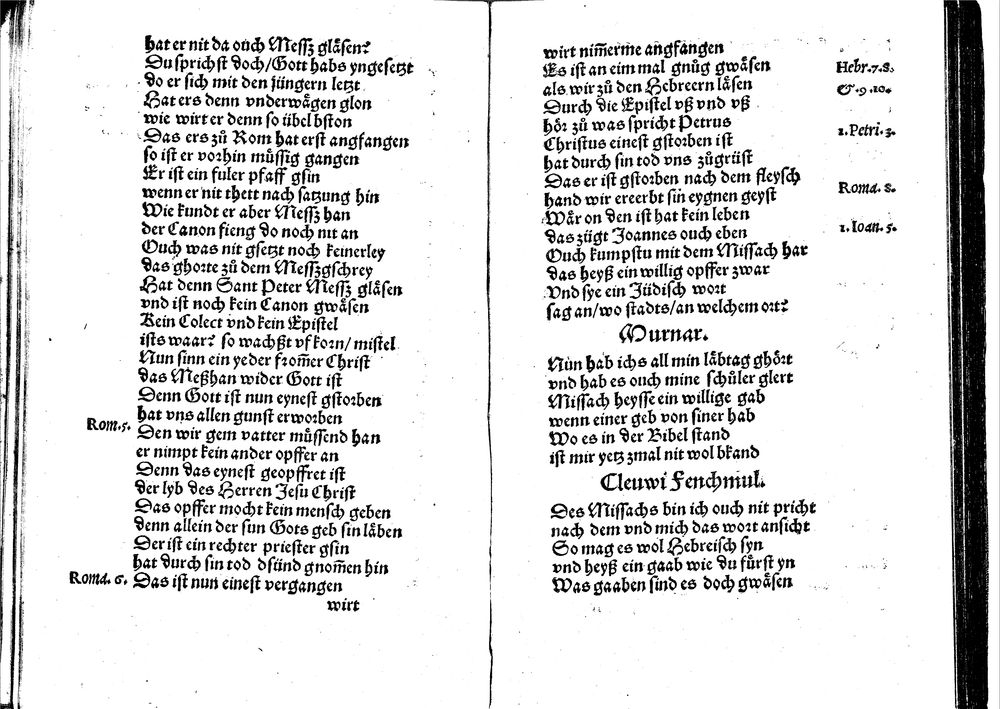 hat er nit da ouch Messz gläsen?
Du sprichst doch/ Gott habs yngesetzt
do er sich mit den jüngern letzt
Hat ers denn vnderwägen glon
wie wirt er denn so übel bston
Das ers zů Rom hat erst angfangen
so ist er vorhin müssig gangen
Er ist ein fuler pfaff gsin
wenn er nit thett nach satzung hin
Wie kundt er aber Messz han
der Canon fieng do noch nit an
Ouch was nit gsetzt noch keinerley
das ghorte zů dem Messzgschrey
Hat denn Sant Peter Messz gläsen
vnd ist noch kein Canon gwäsen
Kein Colect vnd kein Epistel
ists waar? so wachßt vf korn/ mistel
Nun sinn ein yeder from̄er Christ
das Meßhan wider Gott ist
Denn Gott ist nun eynest gstorben
hat vns allen gunst erworben
Rom. 5. Den wir gem vatter müssend han
er nimpt kein ander opffer an
Denn das eynest geopffret ist
der lyb des Herren Jesu Christ
Das opffer mocht kein mensch geben
denn allein der sun Gots geb sin läben
Der ist ein rechter priester gsin
hat durch sin tod dsünd gnom̄en hin
Roma. 6. Das ist nun einest vergangen
wirt
wirt nim̄erme angfangen
Es ist an eim mal gnůg gwäsen Hebr. 7. 8.
als wir zů den Hebreern läsen Et. 9. 10.
Durch die Epistel vß vnd vß
hör zů was spricht Petrus 1. Petri. 3.
Christus einest gstorben ist
hat durch sin tod vns zůgrüst
Das er ist gstorben nach dem fleysch
hand wir ererbt sin eygnen geyst Roma. 8.
Wär on den ist hat kein leben
das zügt Joannes ouch eben 1. Ioan. 5.
Ouch kumpstu mit dem Missach har
das heyß ein willig opffer zwar
Vnd sye ein Jüdisch wort
sag an/ wo stadts/ an welchem ort?
Murnar.
Nun hab ichs all min läbtag ghört
vnd hab es ouch mine schüler glert
Missach heysse ein willige gab
wenn einer geb von siner hab
Wo es in der Bibel stand
ist mir yetz zmal nit wol bkand
Cleuwi Fenchmul.
Des Missachs bin ich ouch nit pricht
nach dem vnd mich das wort ansicht
So mag es wol Hebreisch syn
vnd heyß ein gaab wie du fürst yn
Was gaaben sind es doch gwäsen